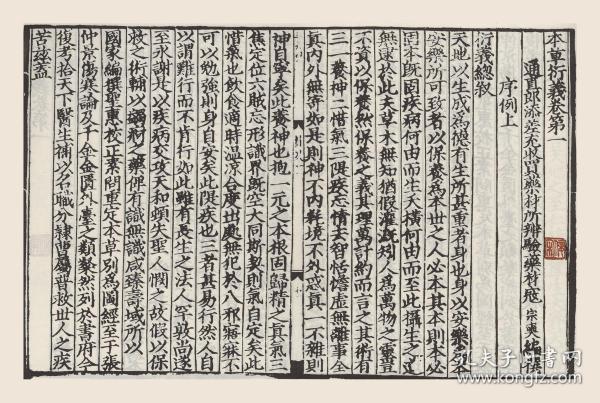 本草衍義卷第一
通直郎添差充收買藥材所辨驗藥材寇宗奭編撰
序例上
衍義總敘
天地以生成為德有生所甚重者身也身以安樂為本
安樂所可致者以保養為本世之人必本其本則本必
固本既固疾病何由而生夭橫何由而至此攝生之道
無逮於此夫草木無知猶假灌溉矧人為萬物之靈豈
不資以保養然保養之義其理萬計約而言之其術有
三一養神二惜氣三隄疾忘情去智恬憺虛無離事全
真內外無寄如是則神不內耗境不外惑真一不雜則
神自寧矣此養神也抱一元之本根固歸精之真氣三
焦定位六賊忘形識界既空大同斯契則氣自定矣此
惜氣也飲食適時溫涼合度出處無犯於八邪寤寐不
可以勉強則身自安矣此隄疾也三者甚易行然人自
以謂難行而不肯行如此雖有長生之法人罕敦尚遂
至永謝是以疾病交攻天和頓失聖人憫之故假以保
救之術輔以蠲痾之藥俾有識無識咸臻壽域所以
國家編撰聖惠校正素問重定本草別為圖經至于張
仲景傷寒論及千金金匱外臺之類粲然列於書府今
復考拾天下醫生補以名職分隸曹屬普救世人之疾
苦茲蓋
孔夫子旧书网